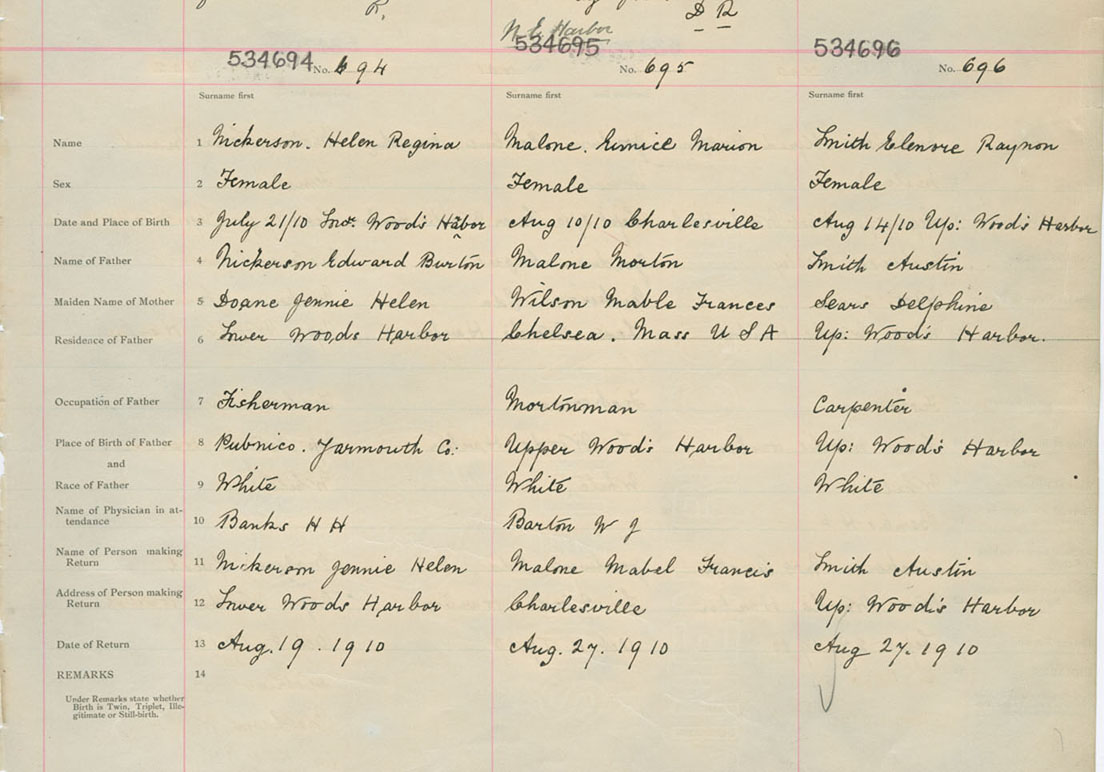 R,
D R
N. E Harbor
534694 No. 694
534695 No. 695
534696 No. 696
Surname first Surname first Surname first
Name 1 Nickerson. Helen Regina Malone. Eunice Marion Smith Elenore Raynon
Sex 2 Female Female Female
Date and Place of Birth 3 July 21/10 Lowr. Wood's Habor Aug 10/10 Charlesville Aug 14/10 Up: Wood's Harbor
Name of Father 4 Nickerson Edward Burton Malone Morton Smith Austin
Maiden Name of Mother 5 Doane Jennie Helen Wilson Mable Frances Sears Delphine
Residence of Father 6 Lower Woods Harbor Chelsea. Mass U S A Up: Wood's Harbor.
Occupation of Father 7 Fisherman Mortonman Carpenter
Place of Birth of Father 8 Pubnico. Yarmouth Co: Upper Wood's Harbor Up: Wood's Harbor
and
Race of Father 9 White White White
Name of Physician in at-
tendance 10 Banks H H Barton W J
Name of Person making
Return 11 Nikerson Jennie Helen Malone Mabel Francis Smith Austin
Address of Person making
Return 12 Lower Woods Harbor Charlesville Up: Wood's Harbor
Date of Return 13 Aug. 19. 1910 Aug. 27. 1910 Aug 27. 1910
REMARKS 14
Under Remarks state whether
Birth is Twin, Triplet, Ille-
gitimate or Still-birth.